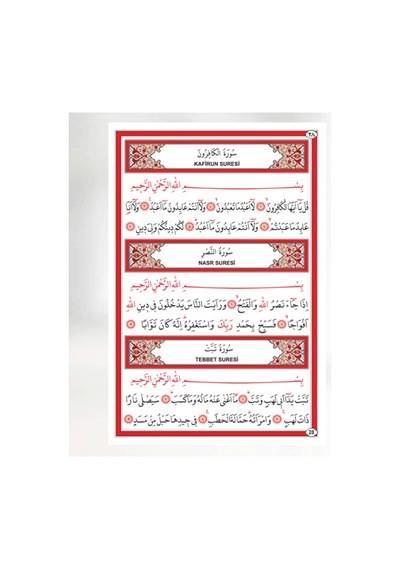 ٢٨
سُورَةُ الْكَافِرُونَ
KAFİRUN SURESİ
بِسْــــــمِ اللهِ الرَّحْمٰنِ الرَّحِيمِ
قُلْ يَٓا اَيُّهَا الْكَافِرُونَۙ ﴿١﴾ لَٓا اَعْبُدُ مَا تَعْبُدُونَۙ ﴿٢﴾ وَلَٓا اَنْتُمْ عَابِدُونَ مَٓا اَعْبُدُۚ ﴿٣﴾ وَلَٓا اَنَا۬
عَابِدٌ مَا عَبَدْتُمْۙ ﴿٤﴾ وَلَٓا اَنْتُمْ عَابِدُونَ مَٓا اَعْبُدُۜ ﴿٥﴾ لَكُمْ دِينُكُمْ وَلِيَ دِينِ ﴿٦﴾
سُورَةُ النَّصْرِ
NASR SURESİ
بِسْــــــمِ اللهِ الرَّحْمٰنِ الرَّحِيمِ
اِذَا جَٓاءَ نَصْرُ اللهِ وَالْفَتْحُۙ ﴿١﴾ وَرَاَيْتَ النَّاسَ يَدْخُلُونَ فِي دِينِ اللهِ
اَفْوَاجًاۙ ﴿٢﴾ فَسَبِّحْ بِحَمْدِ رَبِّكَ وَاسْتَغْفِرْهُۜ اِنَّهُ كَانَ تَوَّابًا ﴿٣﴾
سُورَةُ تَبَّتْ
TEBBET SURESİ
بِسْــــــمِ اللهِ الرَّحْمٰنِ الرَّحِيمِ
تَبَّتْ يَدَٓا اَبِي لَهَبٍ وَتَبَّۜ ﴿١﴾ مَٓا اَغْنٰى عَنْهُ مَالُهُ وَمَا كَسَبَۜ ﴿٢﴾ سَيَصْلٰى نَارًا
ذَاتَ لَهَبٍۚ ﴿٣﴾ وَامْرَاَتُهُۜ حَمَّالَةَ الْحَطَبِۚ ﴿٤﴾ فِي جِيدِهَا حَبْلٌ مِنْ مَسَدٍ ﴿٥﴾
28